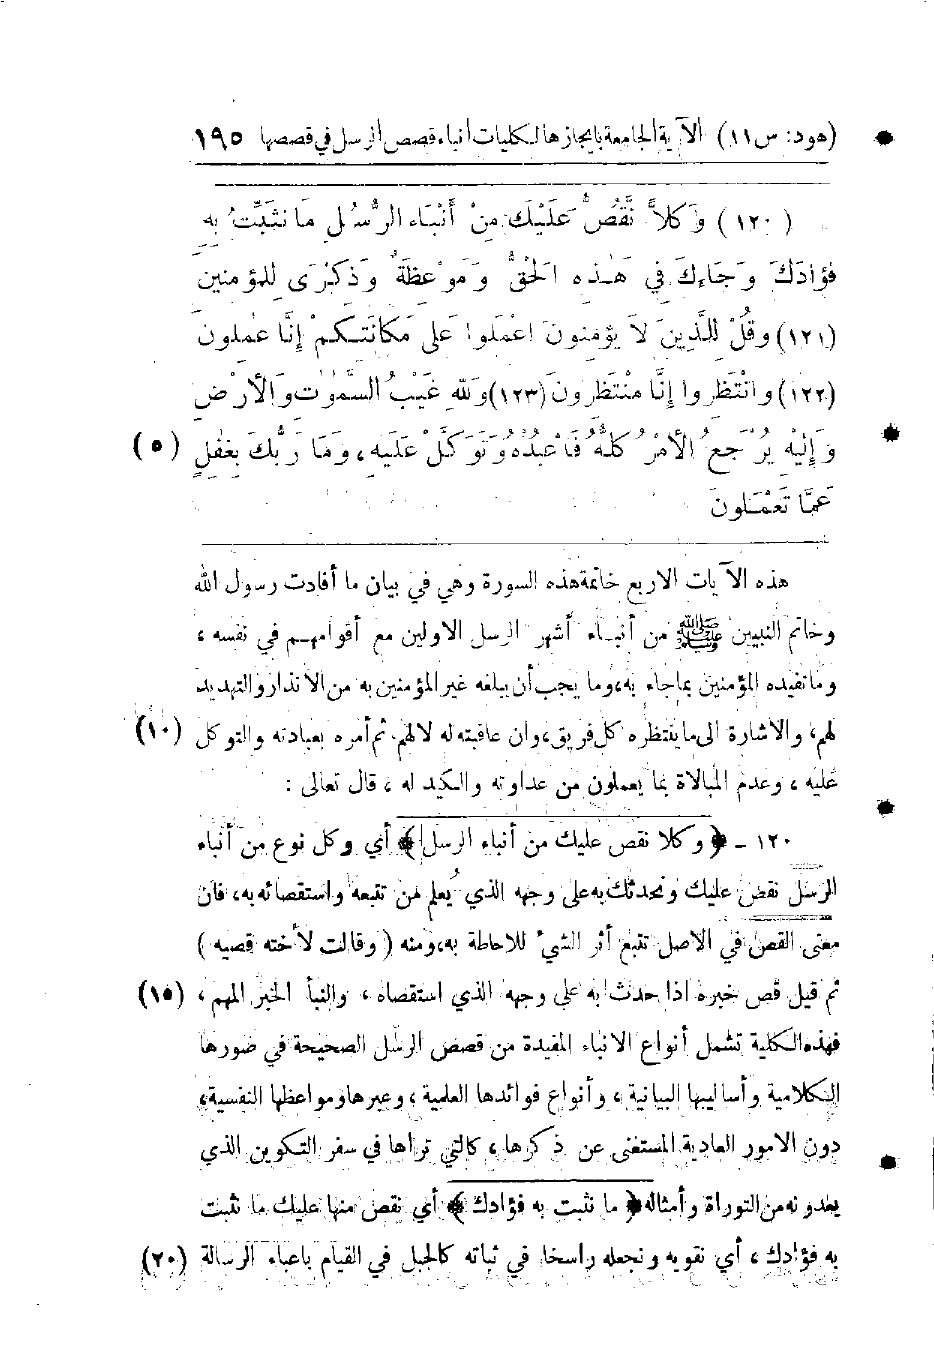 (هود: س ١١) الآية الجامعة بايجازها لكليات أنباء قصص الرسل في قصصها ١٩٥
(١٢٠) وَكُلاًّ نَقُصُّ عَلَيْكَ مِنْ أَنْبَاء الرُّسُلِ مَا نُثَبِّتُ بِهِ
فُؤَادَكَ وَجَاءكَ فِي هَٰذِهِ الْحَقُّ وَمَوْعِظَةٌ وَذِكْرَى لِلْمُؤْمِنِينَ
(١٢١) وَقُلْ لِلَّذِينَ لاَ يُؤْمِنُونَ اعْمَلُوا عَلَى مَكَانَتِكُمْ إِنَّا عَٰمِلُونَ
(١٢٢) وَانْتَظِرُوا إِنَّا مُنْتَظِرُونَ (١٢٣) وَلِلّٰهِ غَيْبُ السَّمَٰوَٰتِ وَالأَرْضِ
وَإِلَيْهِ يُرْجَعُ الأَمْرُ كُلُّهُ فَاعْبُدْهُ وَتَوَكَّلْ عَلَيْهِ، وَمَا رَبُّكَ بِغَٰفِلٍ (٥)
عَمَّا تَعْمَلُونَ
هذه الآيات الاربع خاتمة هذه السورة وهي في بيان ما أفادت رسول الله
وخاتم النبيين ﷺ من أنباء أشهر الرسل الاولين مع أقوامهم في نفسه ،
وما تفيده المؤمنين بما جاء به، وما يجب أن يبلغه غير المؤمنين به من الانذار والتهديد
لهم، والاشارة الى ما ينتظره كل فريق، وان عاقبته له لا لهم. ثم أمره بعبادته والتوكل (١٠)
عليه ، وعدم المبالاة بما يعملون من عداوته والكيد له ، قال تعالى :
١٢٠ - ﴿ وكلا نقص عليك من أنباء الرسل ﴾ أي وكل نوع من أنباء
الرسل نقص عليك ونحدثك به على وجهه الذي يُعلم من تتبعه واستقصائه به، فان
معنى القص في الاصل تتبع أثر الشيء للاحاطة به، ومنه ( وقالت لأخته قصيه )
ثم قيل قص خبره اذا حدث به على وجهه الذي استقصاه ، والنبأ الخبر المهم ، (١٥)
فهذه الكلية تشمل أنواع الانباء المفيدة من قصص الرسل الصحيحة في صورها
الكلامية وأساليبها البيانية ، وأنواع فوائدها العلمية ، وعبرها ومواعظها النفسية،
دون الامور العادية المستغنى عن ذكرها ، كالتي تراها في سفر التكوين الذي
يعدونه من التوراة وأمثاله ﴿ ما نثبت به فؤادك ﴾ أي نقص منها عليك ما نثبت
به فؤادك ، أي نقويه ونجعله راسخا في ثباته كالجبل في القيام باعباء الرسالة (٢٠)